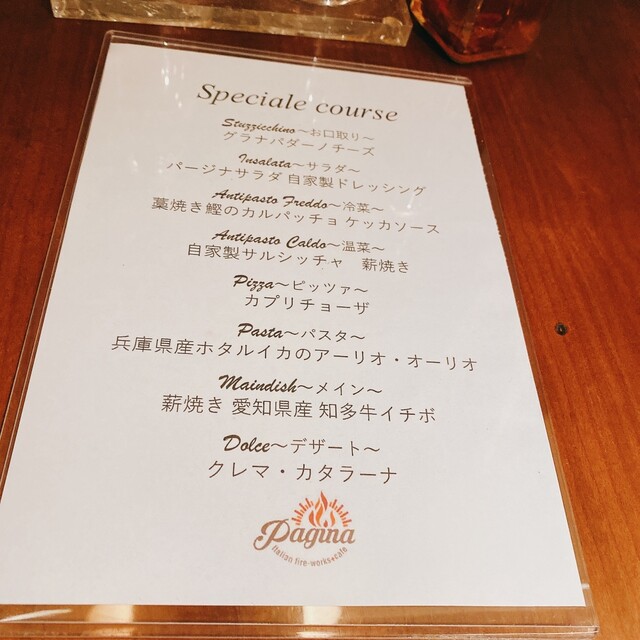 Speciale course
Stuzzicchino～お口取り～
グラナパダーノチーズ
Insalata～サラダ～
パージナサラダ 自家製ドレッシング
Antipasto Freddo～冷菜～
藁焼き鰹のカルパッチョ ケッカソース
Antipasto Caldo～温菜～
自家製サルシッチャ　薪焼き
Pizza～ピッツァ～
カプリチョーザ
Pasta～パスタ～
兵庫県産ホタルイカのアーリオ・オーリオ
Maindish～メイン～
薪焼き 愛知県産 知多牛イチボ
Dolce～デザート～
クレマ・カタラーナ
Pagina
italian fire-works+cafe